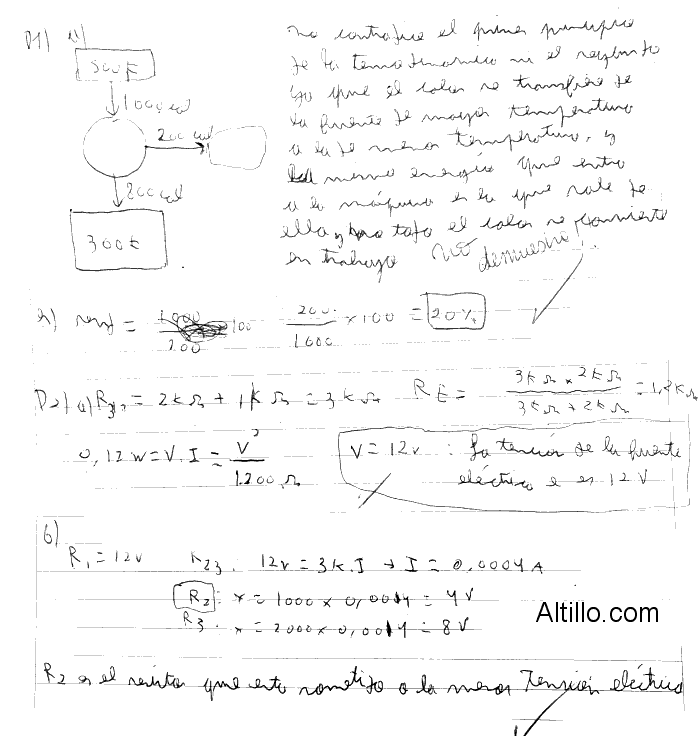 D1) a)
500K
1000 cal
200 cal
200 cal
300K
no contradice el primer principio
de la termodinamica ni el segundo
ya que el calor se transfiere de
la fuente de mayor temperatura
a la de menor temperatura, y
la misma energía que entra
a la máquina es la que sale de
ella y no todo el calor se convierte
en trabajo
no demuestra
b) rend = 1000 / 200 100 200 / 1000 × 100 = 20%
D2) a) R23 = 2KΩ + 1KΩ = 3KΩ RE = 3KΩ × 2KΩ / 3KΩ + 2KΩ = 1,2KΩ
0,12 W = V.I = V² / 1.200 Ω
V = 12v : La tensión de la fuente
eléctrica es 12 V
b)
R1 = 12v R23: 12v = 3K.I → I = 0,0004 A
R2: x = 1000 × 0,004 = 4V
R3: x = 2000 × 0,004 = 8V
Altillo.com
R2 es el resistor que esta sometido a la menor tensión eléctrica